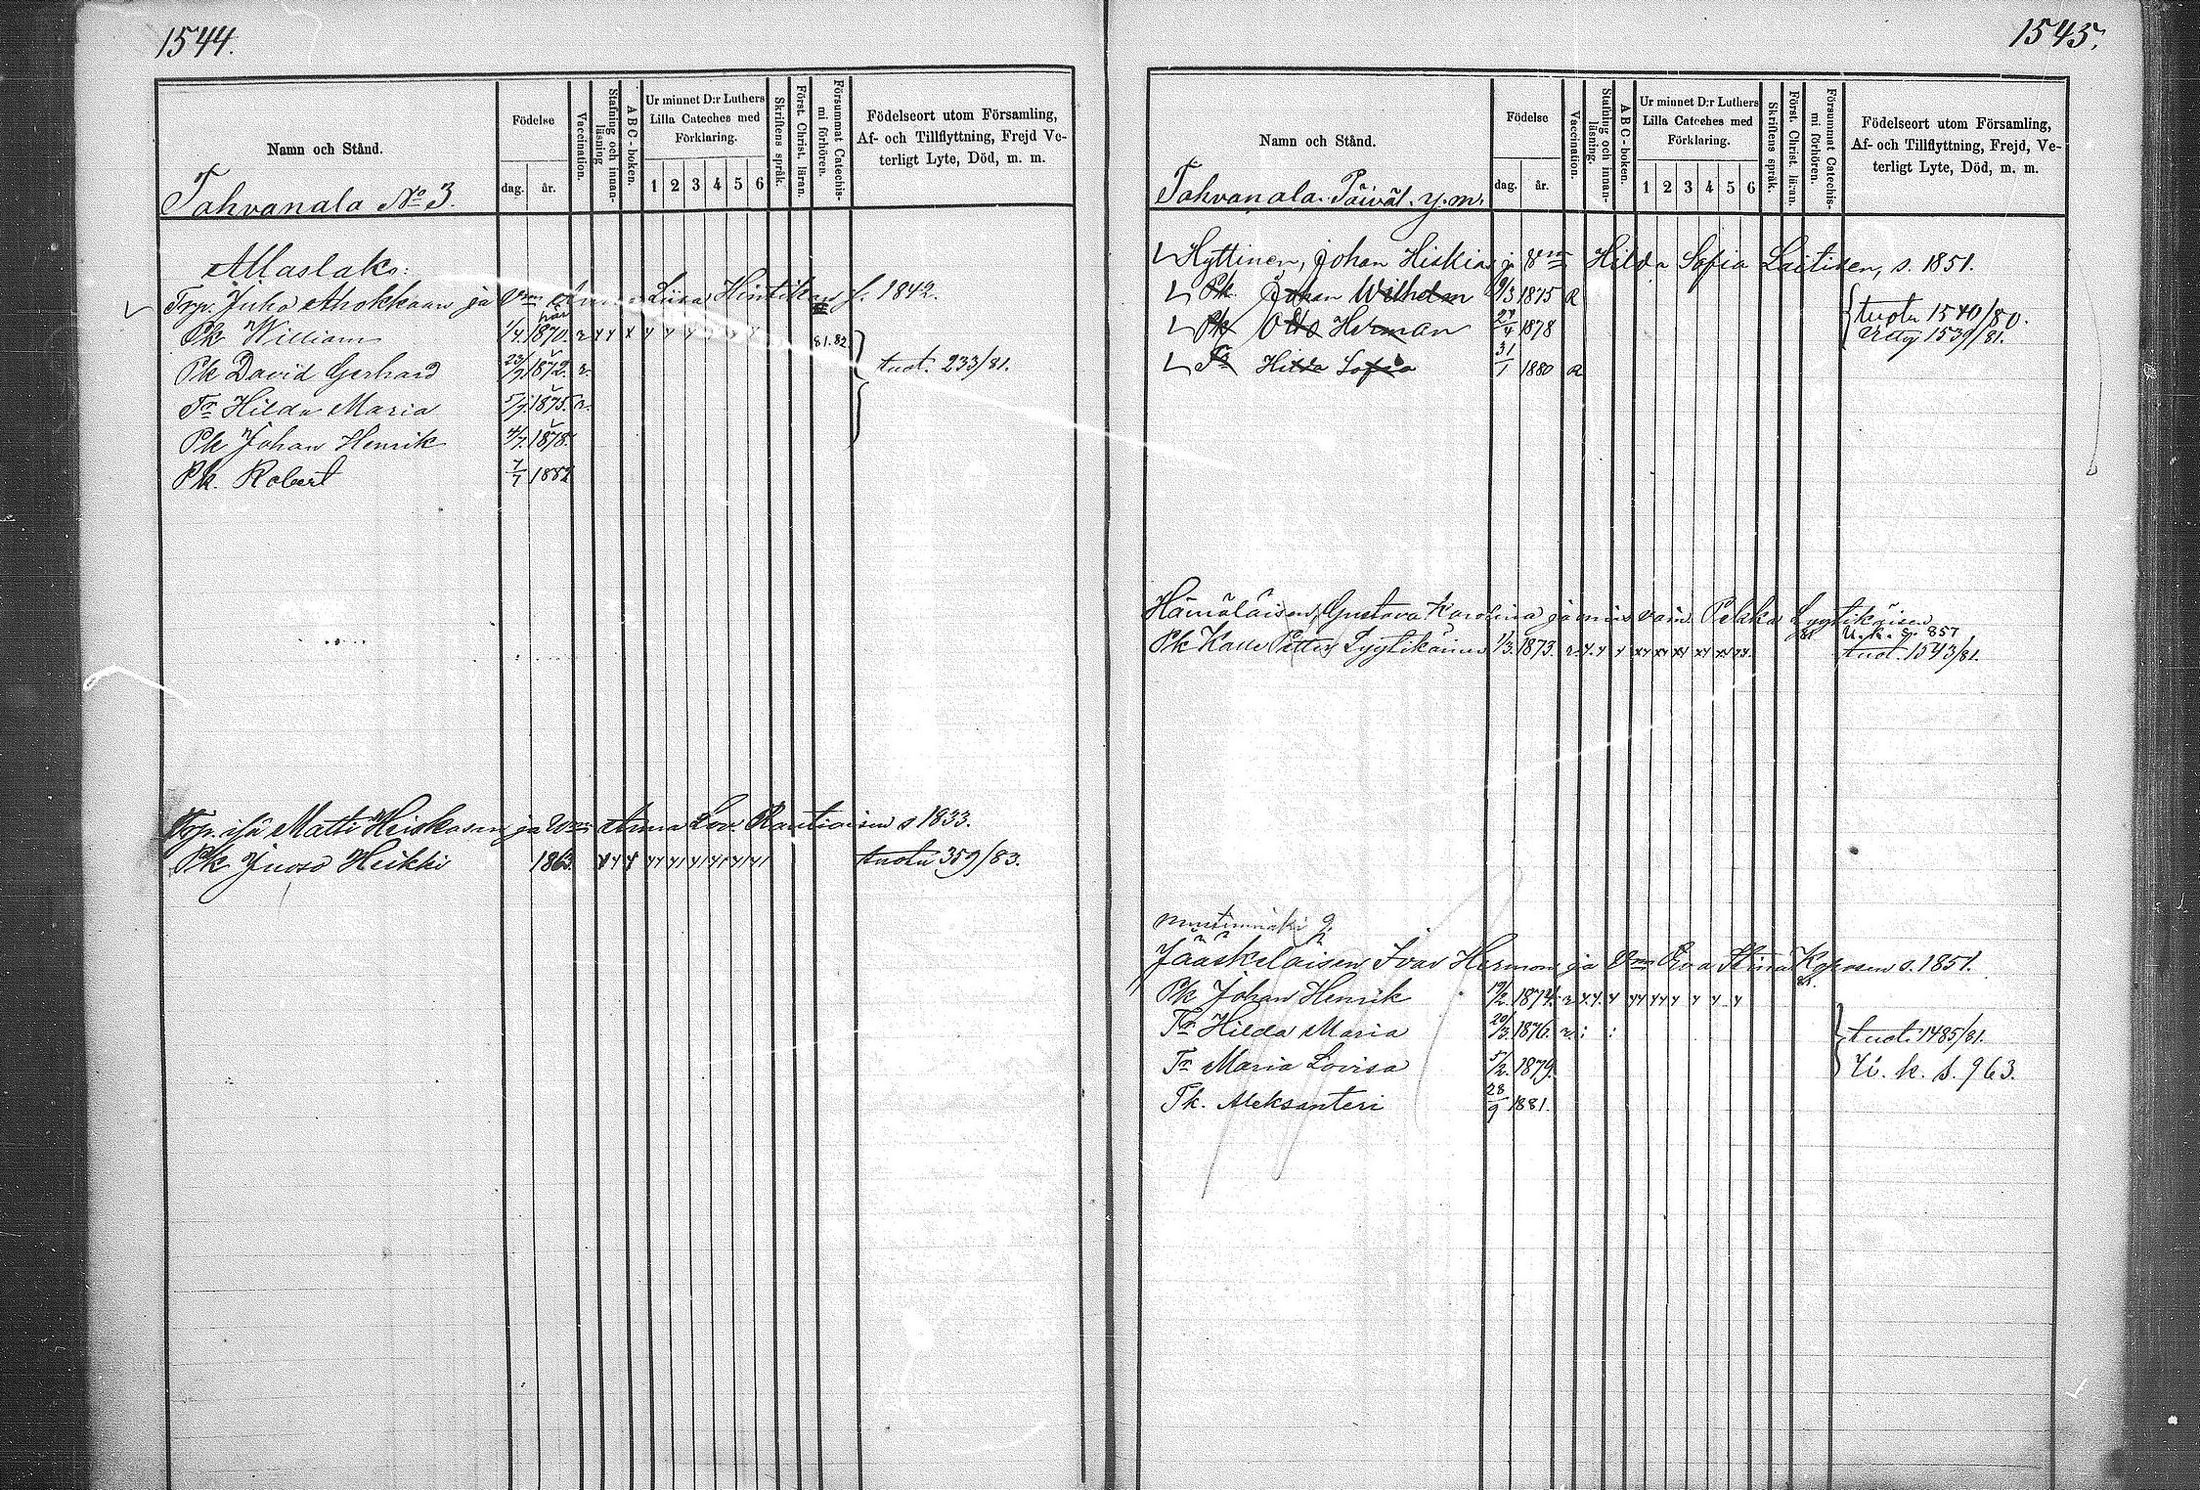 1544.
Namn och Stånd.
Födelse
dag. år.
Vaccination.
Stafning och innanläsning
A B C-boken.
Ur minnet D:r Luthers
Lilla Cateches med
Förklaring.
1 2 3 4 5 6
Skriftens språk.
Först. Christ. läran.
Försummat Catechismi förhören.
Födelseort utom Församling,
Af- och Tillflyttning, Frejd Ve-
terligt Lyte, Död, m. m.
Tahvanala No 3.
Trp. Juho Ahokkaan ja Vmn Anna Liisa Hintikus s. 1842.
Pk William 1/4 1870. 81.82
Pk David Gerhard 1872. tuot. 233/81.
Tr Hilda Maria 5/7 1875.
Pk Johan Henrik 4/7 1878.
Pk. Robert 7/7 1882
Trp. isä Matti Heiskasen ja Vmn Anna Lov. Rautiaisen s 1833.
Pk Juoso Heikki 1863. tuotu 359/83.
1545.
Namn och Stånd.
Födelse
dag. år.
Vaccination.
Stafning och innan-
läsning.
A B C-boken.
Ur minnet D:r Luthers
Lilla Cateches med
Förklaring.
1 2 3 4 5 6
Skriftens språk.
Först. Christ. läran.
Försummat Catechis-
mi förhören.
Födelseort utom Församling,
Af- och Tillflyttning, Frejd, Ve-
terligt Lyte, Död, m. m.
Tahvanala. Päiväl. y. m.
Hyttinen, Johan Hiskias ja Vmn Hilda Sofia Laitinen, s. 1851.
Pk Johan Wilhelm 9/3 1875 R
tuotu 1540/80.
Pk Otto Herman 27/4 1878
1539/81.
Tr Hilda Sofia 31/1 1880 R
Hämäläisen, Gustava Karolina ja mies vain. Pekka Lyytikäisen
U. k. s. 857
Pk Kalle Petter Lyytikäinen 1/3 1873. tuot. 1543/81.
Mustinmäki 9.
Jääskeläisen Ivar Herman ja Vmn Eva Stina Koposen s. 1851.
Pk Johan Henrik 19/2 1874.
Tr Hilda Maria 20/3 1876. tuot. 1485/81.
Tr Maria Lovisa 5/2 1879. U. k. s. 963.
Pk. Aleksanteri 28/9 1881.